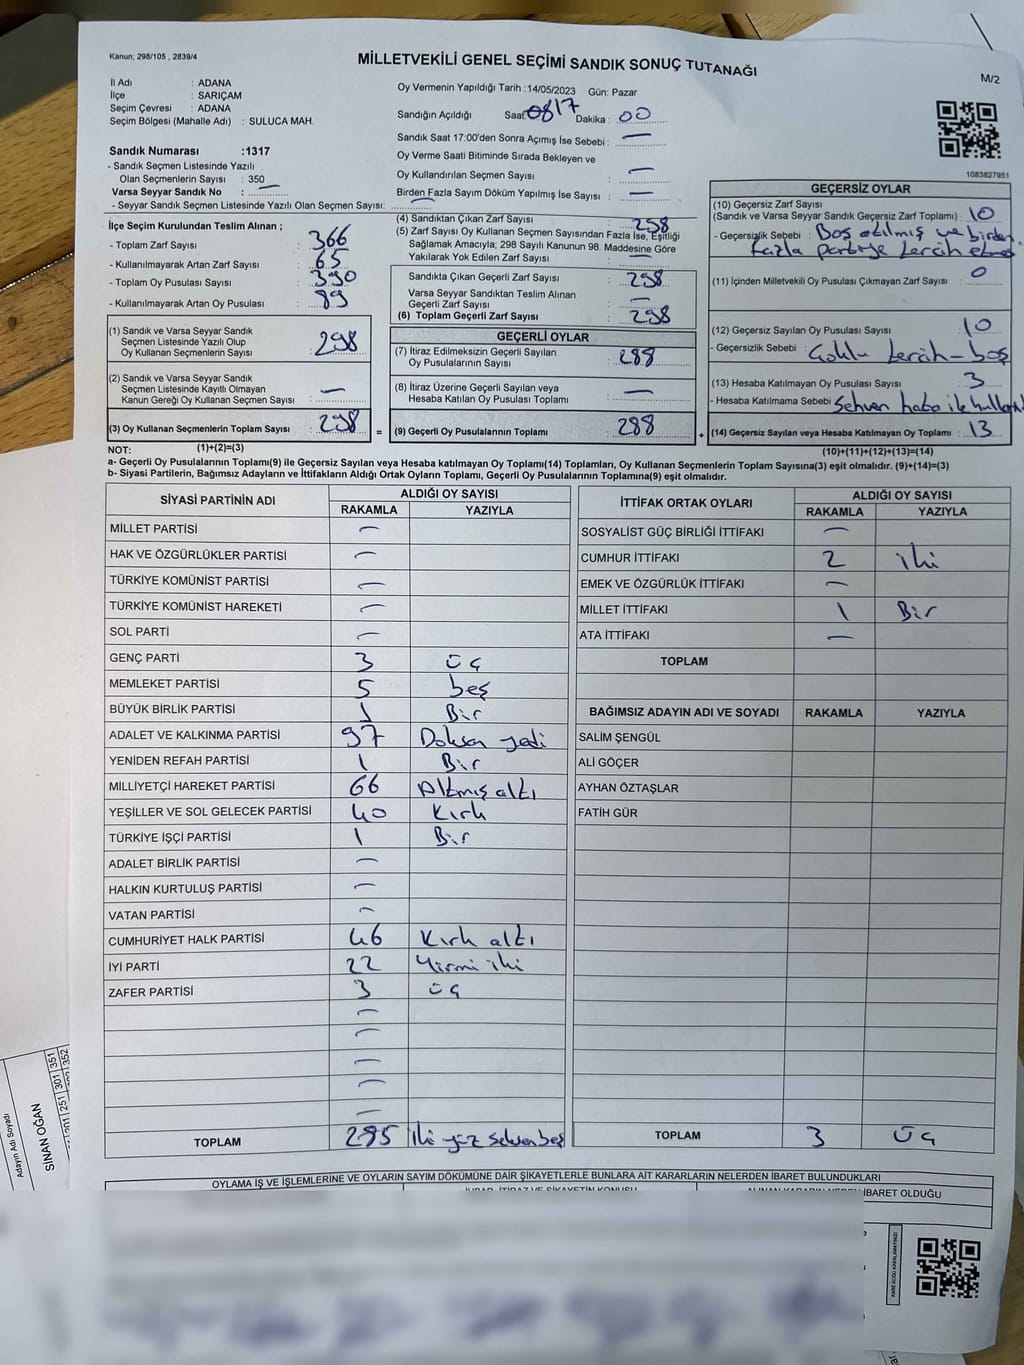 Kanun; 298/105 , 2839/4
MİLLETVEKİLİ GENEL SEÇİMİ SANDIK SONUÇ TUTANAĞI
M/2
İl Adı : ADANA
İlçe : SARIÇAM
Seçim Çevresi : ADANA
Seçim Bölgesi (Mahalle Adı) : SULUCA MAH.
Sandık Numarası :1317
- Sandık Seçmen Listesinde Yazılı
Olan Seçmenlerin Sayısı : 350
Varsa Seyyar Sandık No : —
- Seyyar Sandık Seçmen Listesinde Yazılı Olan Seçmen Sayısı: —
Oy Vermenin Yapıldığı Tarih : 14/05/2023 Gün: Pazar
Sandığın Açıldığı Saat 0817 Dakika : 00
Sandık Saat 17:00'den Sonra Açımış İse Sebebi : —
Oy Verme Saati Bitiminde Sırada Bekleyen ve
Oy Kullandırılan Seçmen Sayısı : —
Birden Fazla Sayım Döküm Yapılmış İse Sayısı : —
1083827951
İlçe Seçim Kurulundan Teslim Alınan ;
- Toplam Zarf Sayısı : 366
- Kullanılmayarak Artan Zarf Sayısı : 65
- Toplam Oy Pusulası Sayısı : 390
- Kullanılmayarak Artan Oy Pusulası : 89
(1) Sandık ve Varsa Seyyar Sandık
Seçmen Listesinde Yazılı Olup
Oy Kullanan Seçmenlerin Sayısı : 298
(2) Sandık ve Varsa Seyyar Sandık
Seçmen Listesinde Kayıtlı Olmayan
Kanun Gereği Oy Kullanan Seçmen Sayısı : —
(3) Oy Kullanan Seçmenlerin Toplam Sayısı : 298
(1)+(2)=(3)
(4) Sandıktan Çıkan Zarf Sayısı : 298
(5) Zarf Sayısı Oy Kullanan Seçmen Sayısından Fazla İse, Eşitliği
Sağlamak Amacıyla; 298 Sayılı Kanunun 98. Maddesine Göre
Yakılarak Yok Edilen Zarf Sayısı : —
Sandıkta Çıkan Geçerli Zarf Sayısı : 298
Varsa Seyyar Sandıktan Teslim Alınan
Geçerli Zarf Sayısı : —
(6) Toplam Geçerli Zarf Sayısı : 298
GEÇERLİ OYLAR
(7) İtiraz Edilmeksizin Geçerli Sayılan
Oy Pusulalarının Sayısı : 288
(8) İtiraz Üzerine Geçerli Sayılan veya
Hesaba Katılan Oy Pusulası Toplamı : —
= (9) Geçerli Oy Pusulalarının Toplamı : 288
GEÇERSİZ OYLAR
(10) Geçersiz Zarf Sayısı
(Sandık ve Varsa Seyyar Sandık Geçersiz Zarf Toplamı) : 10
- Geçersizlik Sebebi : Boş atılmış ve birden
fazla partiye tercih etme
(11) İçinden Milletvekili Oy Pusulası Çıkmayan Zarf Sayısı : 0
(12) Geçersiz Sayılan Oy Pusulası Sayısı : 10
- Geçersizlik Sebebi : Çoklu tercih-boş
(13) Hesaba Katılmayan Oy Pusulası Sayısı : 3
- Hesaba Katılmama Sebebi Sehven hata ile
+ (14) Geçersiz Sayılan veya Hesaba Katılmayan Oy Toplamı : 13
(10)+(11)+(12)+(13)=(14)
NOT:
a- Geçerli Oy Pusulalarının Toplamı(9) ile Geçersiz Sayılan veya Hesaba katılmayan Oy Toplamı(14) Toplamları, Oy Kullanan Seçmenlerin Toplam Sayısına(3) eşit olmalıdır. (9)+(14)=(3)
b- Siyasi Partilerin, Bağımsız Adayların ve İttifakların Aldığı Ortak Oyların Toplamı, Geçerli Oy Pusulalarının Toplamına(9) eşit olmalıdır.
SİYASİ PARTİNİN ADI ALDIĞI OY SAYISI
RAKAMLA YAZIYLA
MİLLET PARTİSİ —
HAK VE ÖZGÜRLÜKLER PARTİSİ —
TÜRKİYE KOMÜNİST PARTİSİ —
TÜRKİYE KOMÜNİST HAREKETİ —
SOL PARTİ —
GENÇ PARTİ 3 üç
MEMLEKET PARTİSİ 5 beş
BÜYÜK BİRLİK PARTİSİ 1 Bir
ADALET VE KALKINMA PARTİSİ 97 Doksan yedi
YENİDEN REFAH PARTİSİ 1 Bir
MİLLİYETÇİ HAREKET PARTİSİ 66 Altmış altı
YEŞİLLER VE SOL GELECEK PARTİSİ 40 Kırk
TÜRKİYE İŞÇİ PARTİSİ 1 Bir
ADALET BİRLİK PARTİSİ —
HALKIN KURTULUŞ PARTİSİ —
VATAN PARTİSİ —
CUMHURİYET HALK PARTİSİ 46 Kırk altı
İYİ PARTİ 22 Yirmi iki
ZAFER PARTİSİ 3 üç
—
—
—
—
—
TOPLAM 285 iki yüz seksen beş
İTTİFAK ORTAK OYLARI ALDIĞI OY SAYISI
RAKAMLA YAZIYLA
SOSYALİST GÜÇ BİRLİĞİ İTTİFAKI —
CUMHUR İTTİFAKI 2 iki
EMEK VE ÖZGÜRLÜK İTTİFAKI —
MİLLET İTTİFAKI 1 Bir
ATA İTTİFAKI —
TOPLAM
BAĞIMSIZ ADAYIN ADI VE SOYADI RAKAMLA YAZIYLA
SALİM ŞENGÜL
ALİ GÖÇER
AYHAN ÖZTAŞLAR
FATİH GÜR
TOPLAM 3 üç
OYLAMA İŞ VE İŞLEMLERİNE VE OYLARIN SAYIM DÖKÜMÜNE DAİR ŞİKAYETLERLE BUNLARA AİT KARARLARIN NELERDEN İBARET BULUNDUKLARI
İBARET OLDUĞU
Adayın Adı Soyadı
SİNAN OĞAN
201 251 301 351
302 352